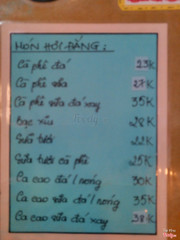 MÓN HƠI ĐẮNG:
Cà phê đá 23K
Cà phê sữa 27K
Cà phê sữa đá xay 35K
Bạc xỉu 28K
Sữa tươi 22K
Sữa tươi cà phê 25K
Ca cao đá / nóng 30K
Ca cao sữa đá / nóng 35K
Ca cao sữa đá xay 38K